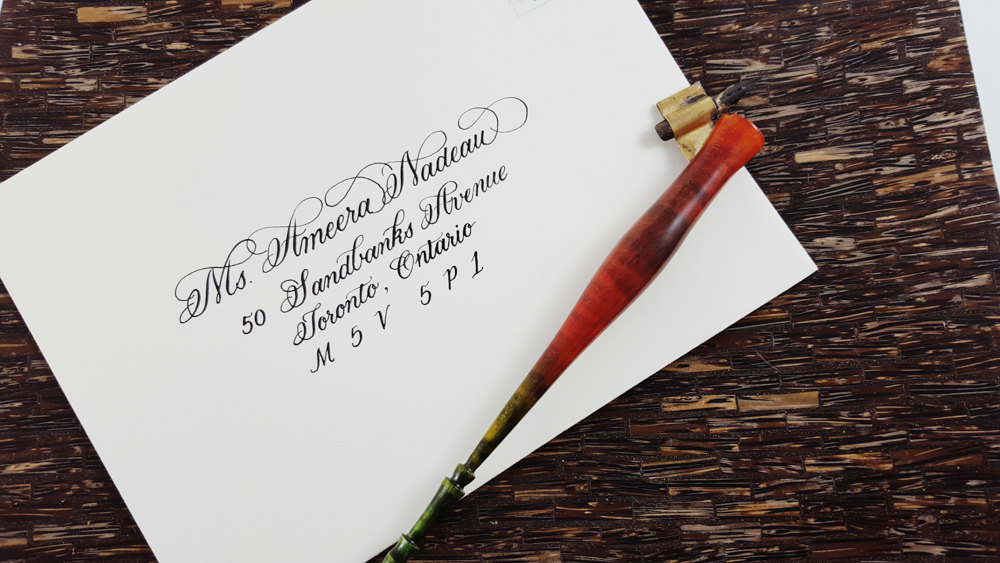 Ms. Ameera Nadeau
50 Sandbanks Avenue
Toronto, Ontario
M 5 V 5 P 1